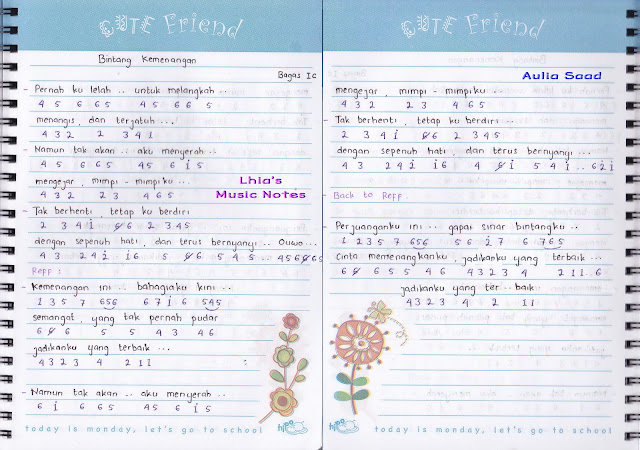 CUTE Friend
Bintang Kemenangan
Bagas Ic
- Pernah ku lelah .. untuk melangkah ..
4 5 6 6 5 4 5 6 6 5
menangis, dan terjatuh ...
4 3 2 2 3 4 1
- Namun tak akan .. aku menyerah ..
4 5 6 6 5 4 5 6 i 5
mengejar, mimpi - mimpiku ...
4 3 2 2 3 4 6 5
Lhia's
Music Notes
- Tak berhenti, tetap ku berdiri
2 3 4 i 6 6 2 3 4 5
dengan sepenuh hati, dan terus bernyanyi .. Ouwo ...
4 3 2 4 i i 6 5 6 5 4 5 .. 4 5 6 6 6 5
Reff :
- Kemenangan ini .. bahagiaku kini ...
1 3 5 7 6 5 6 6 7 i 6 5 4 5
semangat, yang tak pernah pudar
6 6 6 5 5 4 3 4 6
jadikanku yang terbaik ...
4 3 2 3 4 2 1 1
- Namun tak akan .. aku menyerah ..
6 i 6 6 5 4 5 6 i 5
today is monday, let's go to school
hipo
CUTE Friend
Aulia Saad
mengejar, mimpi - mimpiku ...
4 3 2 2 3 4 6 5
- Tak berhenti, tetap ku berdiri ...
2 3 4 i 6 6 2 3 4 5
dengan sepenuh hati, dan terus bernyanyi ...
4 3 2 4 2 i i 6 4 6 i 5 4 i .. 6 2 i
- Back to Reff.
Perjuanganku ini .. gapai sinar bintangku ..
1 2 3 5 7 6 5 6 5 6 i 7 6 7 6 5
Cinta memenangkanku, jadikanku yang terbaik ...
6 6 6 5 5 4 6 4 3 2 3 4 2 1 1 . 6
jadikanku yang ter .. baik
4 3 2 3 4 2 1 1
today is monday, let's go to school
hipo